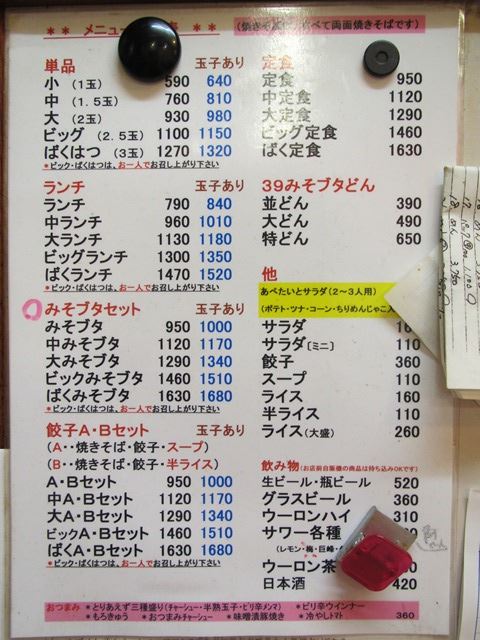 ＊＊ メニュー
(焼きそばは べて両面焼きそばです)
単品 玉子あり
小 (1玉) 590 640
中 (1.5玉) 760 810
大 (2玉) 930 980
ビッグ (2.5玉) 1100 1150
ばくはつ (3玉) 1270 1320
＊ビック・ばくはつは、お一人でお召し上がり下さい
ランチ 玉子あり
ランチ 790 840
中ランチ 960 1010
大ランチ 1130 1180
ビッグランチ 1300 1350
ばくランチ 1470 1520
みそブタセット 玉子あり
みそブタ 950 1000
中みそブタ 1120 1170
大みそブタ 1290 1340
ビックみそブタ 1460 1510
ばくみそブタ 1630 1680
＊ビック・ばくはつは、お一人でお召し上がり下さい
餃子A・Bセット 玉子あり
(A・・焼きそば・餃子・スープ)
(B・・焼きそば・餃子・半ライス)
A・Bセット 950 1000
中A・Bセット 1120 1170
大A・Bセット 1290 1340
ビックA・Bセット 1460 1510
ばくA・Bセット 1630 1680
＊ビック・ばくはつは、お一人でお召し上がり下さい
定食
定食 950
中定食 1120
大定食 1290
ビッグ定食 1460
ばく定食 1630
39みそブタどん
並どん 390
大どん 490
特どん 650
他
あべたいとサラダ(2～3人用)
(ポテト・ツナ・コーン・ちりめんじゃこ入
サラダ 160
サラダ[ミニ] 110
餃子 360
スープ 110
ライス 160
半ライス 110
ライス(大盛) 260
飲み物(お店前自販機の商品は持ち込みOKです)
生ビール・瓶ビール 520
グラスビール 360
ウーロンハイ 310
サワー各種
(レモン・梅・巨峰・
ウーロン茶
日本酒 420
おつまみ ＊とりあえず三種盛り(チャーシュー・半熟玉子・ピリ辛メンマ) ＊ピリ辛ウインナー
＊もろきゅう ＊おつまみチャーシュー ＊味噌漬豚焼き ＊冷やしトマト 360